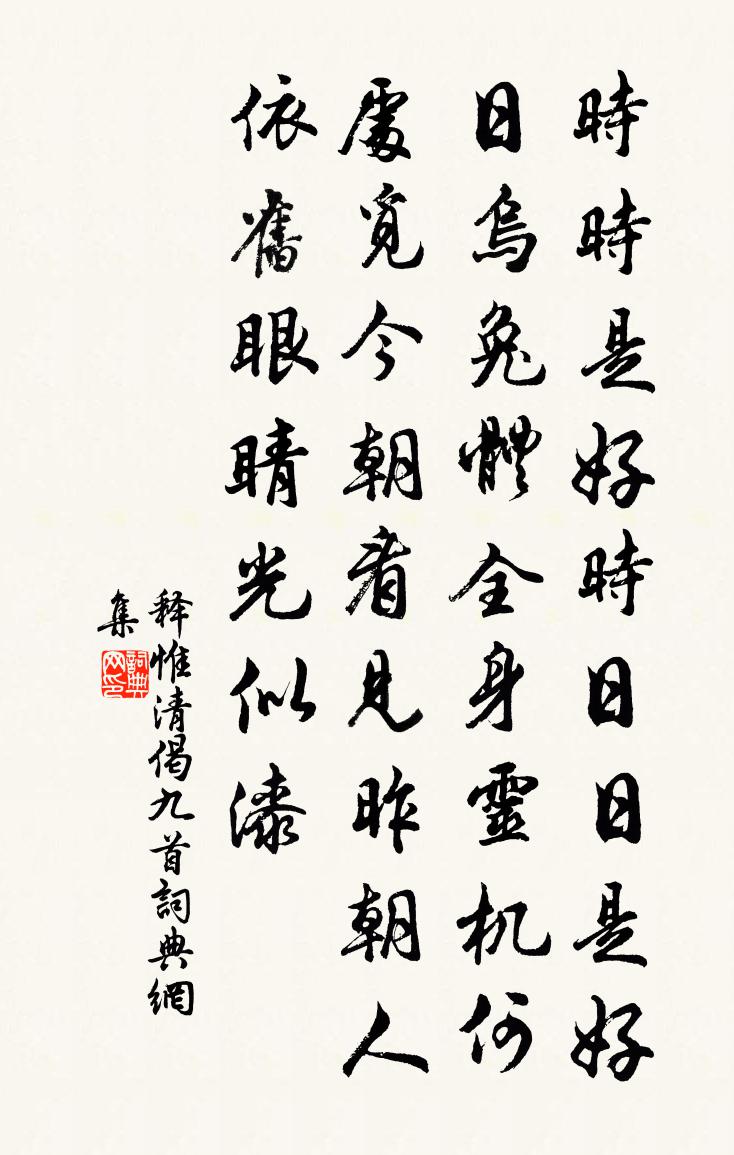 時時是好時日日是好
日烏兔體全身靈机何
處覓今朝看見昨朝人
依舊眼睛光似漆
释惟清偈九首詞典網
集
詞典
网印